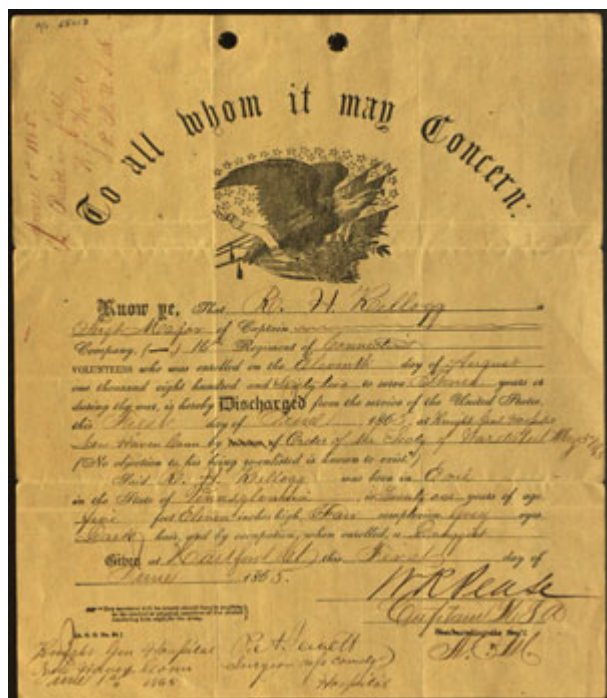 To all whom it may Concern:
Know ye, That R. H. Kellogg a
Sergt Major of Captain
Company, (—) 16th Regiment of Connecticut
VOLUNTEERS who was enrolled on the Eleventh day of August
one thousand eight hundred and Sixty two to serve Three years or
during the war, is hereby Discharged from the service of the United States,
this First day of June 1865, at Knight Genl Hospital
New Haven Conn by of Order of the Secty of War dated May
(No objection to his being re-enlisted is known to exist.)
Said R. H. Kellogg was born in Erie
in the State of Pennsylvania, is Twenty one years of age
Five feet Eleven inches high, Fair complexion, Grey eyes,
Dark hair, and by occupation, when enrolled, a Druggist
Given at Hartford Ct this First day of
June 1865.
W R Pease
Captain U.S.A
Knight Gen Hospital
New Haven Conn
June 1st 1865
P. A. Jewett
Surgeon in comdg
Hospital